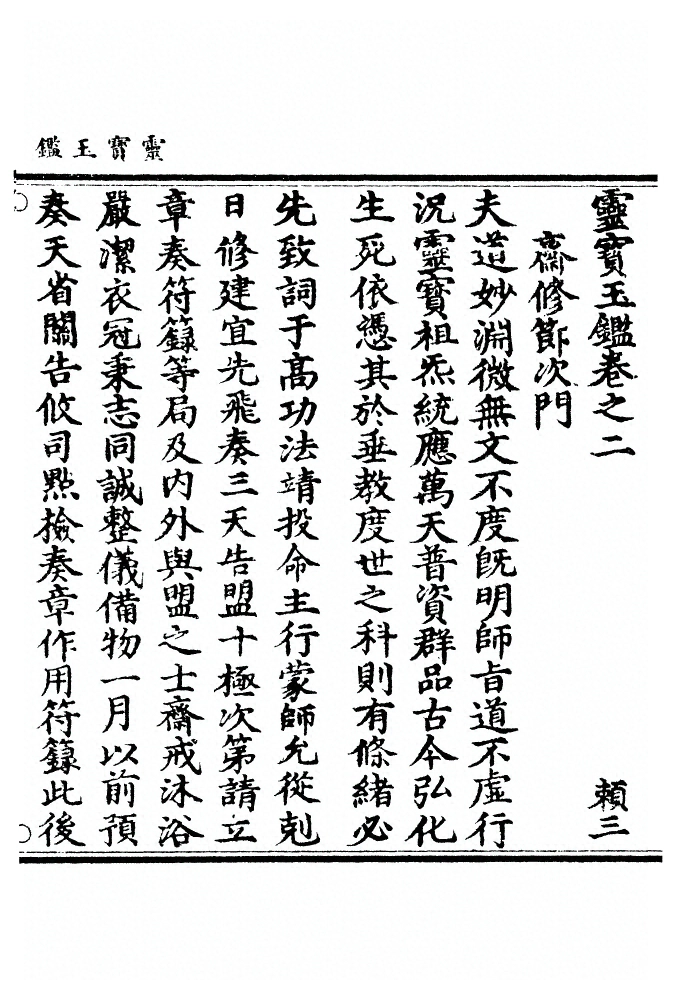 靈寶玉鑑
靈寶玉鑑卷之二 賴三
齋修節次門
夫道妙淵微無文不度旣明師旨道不虛行
況靈寶祖炁統應萬天普資群品古今弘化
生死依憑其於垂教度世之科則有條緒必
先致詞于高功法靖投命主行蒙師允從剋
日修建宜先飛奏三天告盟十極次第請立
章奏符籙等局及內外與盟之士齋戒沐浴
嚴潔衣冠秉志同誠整儀備物一月以前預
奏天省關告攸司點撿奏章作用符籙此後